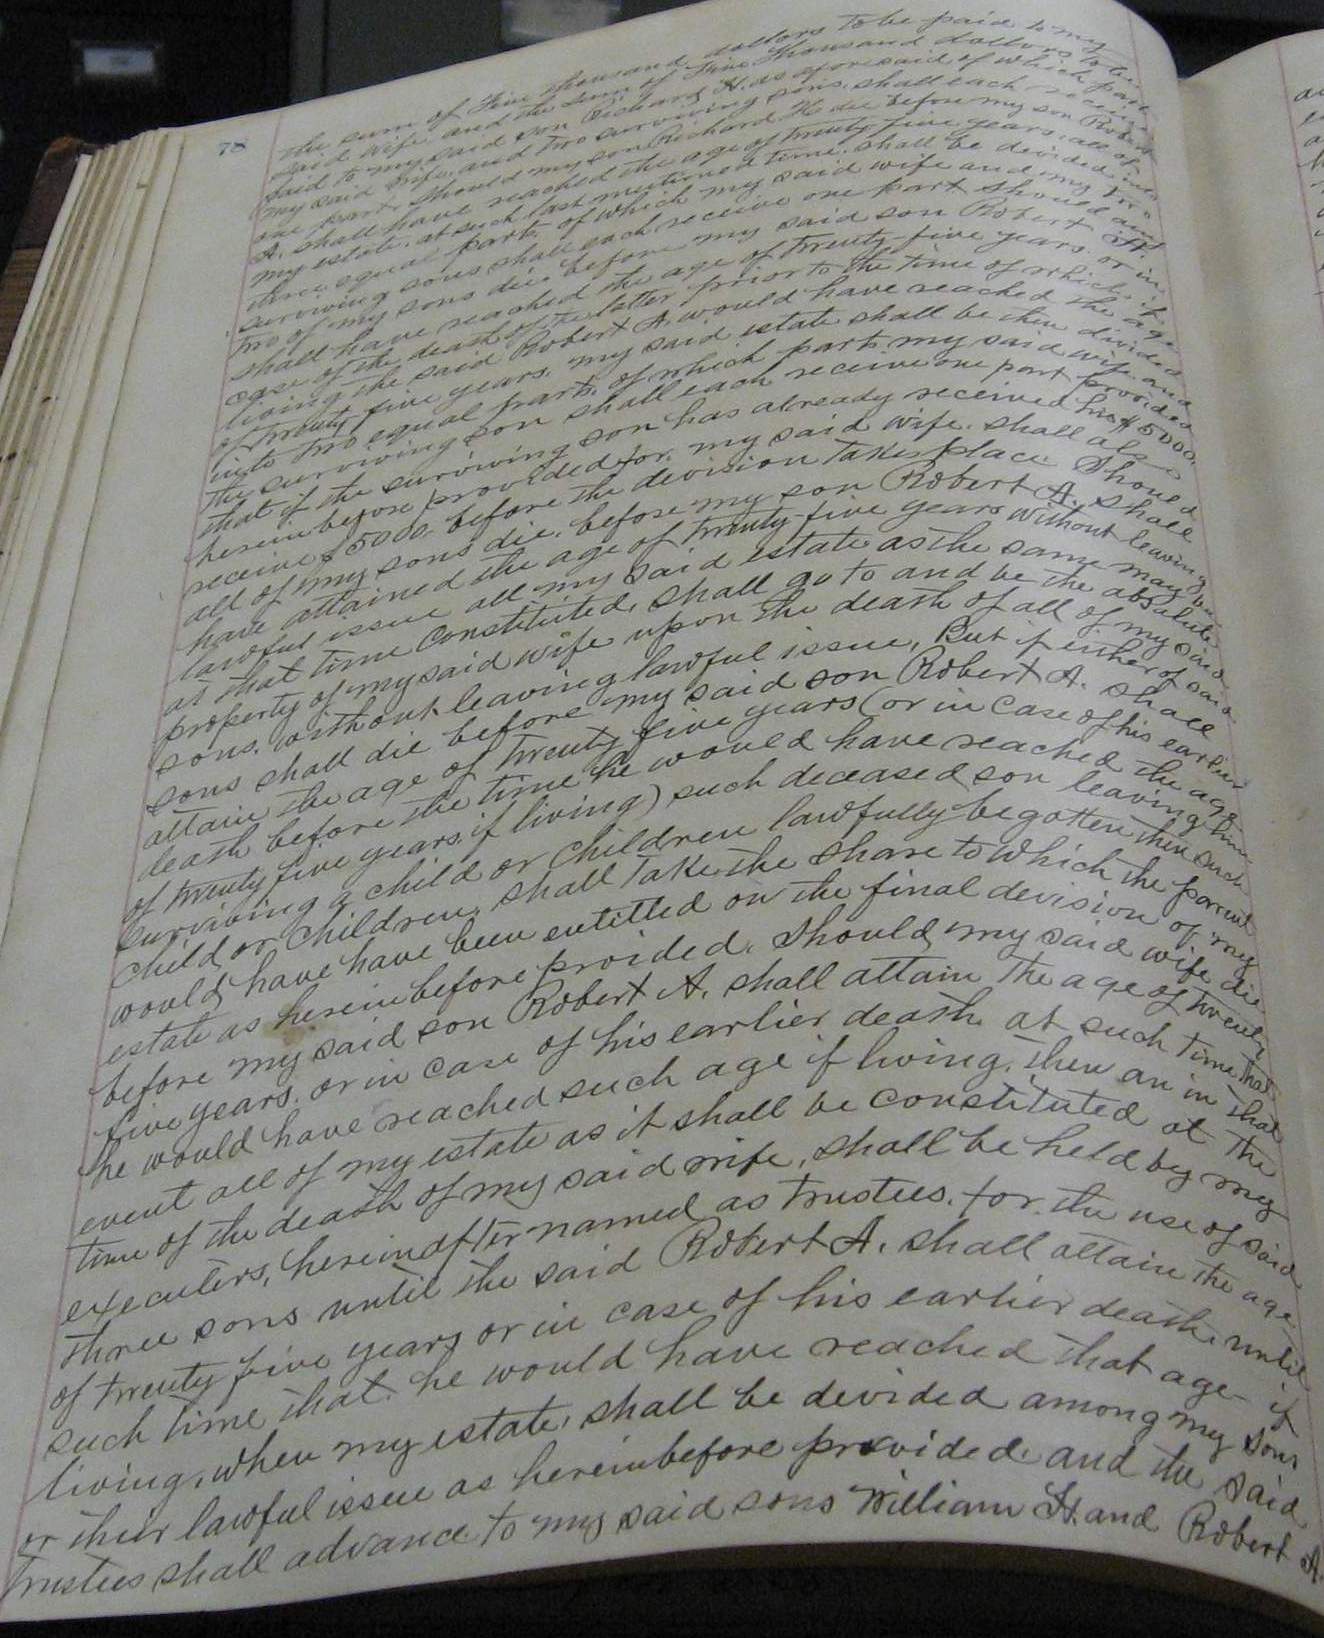 78
the sum of Five thousand dollars to be paid to my
said wife and the sum of Five Thousand dollars to be
paid to my said son Richard H. as aforesaid, of which part
my said wife and two surviving sons, shall each receive
one part. Should my son Richard H die before my son Robert
A. shall have reached the age of twenty five years, all of
my estate, at such last mentioned time, shall be divided into
three equal parts of which my said wife and my two
surviving sons shall each receive one part Should any
two of my sons die before my said son Robert A.
shall have reached the age of twenty-five years or in
case of the death of the latter prior to the time of which if
living the said Robert A. would have reached the age
of twenty five years, my said estate shall be then divided
into two equal parts, of which parts my said wife and
the surviving son shall each receive one part provided
that if the surviving son has already received his $5000.
hereinbefore provided for, my said wife shall also
receive $5000. before the division takes place Should
all of my sons die, before my son Robert A. shall
have attained the age of twenty-five years without leaving
lawful issue all my said estate as the same may be
at that time constituted, shall go to and be the absolute
property of my said wife upon the death of all of my said
sons, without leaving lawful issue, But if either of said
sons shall die before my said son Robert A. shall
attain the age of twenty five years (or in case of his earlier
death before the time he would have reached the age
of twenty five years if living) such deceased son leaving him
surviving a child or children lawfully begotten then such
child or children, shall take the share to which the parent
would have have been entitled on the final devision of my
estate as hereinbefore provided. Should, my said wife die
before my said son Robert A. shall attain the age of twenty
five years, or in case of his earlier death at such time that
he would have reached such age if living, then an in that
event all of my estate as it shall be constituted at the
time of the death of my said wife, shall be held by my
executers, hereinafter named as trustees, for the use of said
three sons until the said Robert A. shall attain the age
of twenty five years or in case of his earlier death until
such time that he would have reached that age if
living, when my estate, shall be devided among my sons
or their lawful issue as hereinbefore provided and the said
trustees shall advance to my said sons William H. and Robert A.